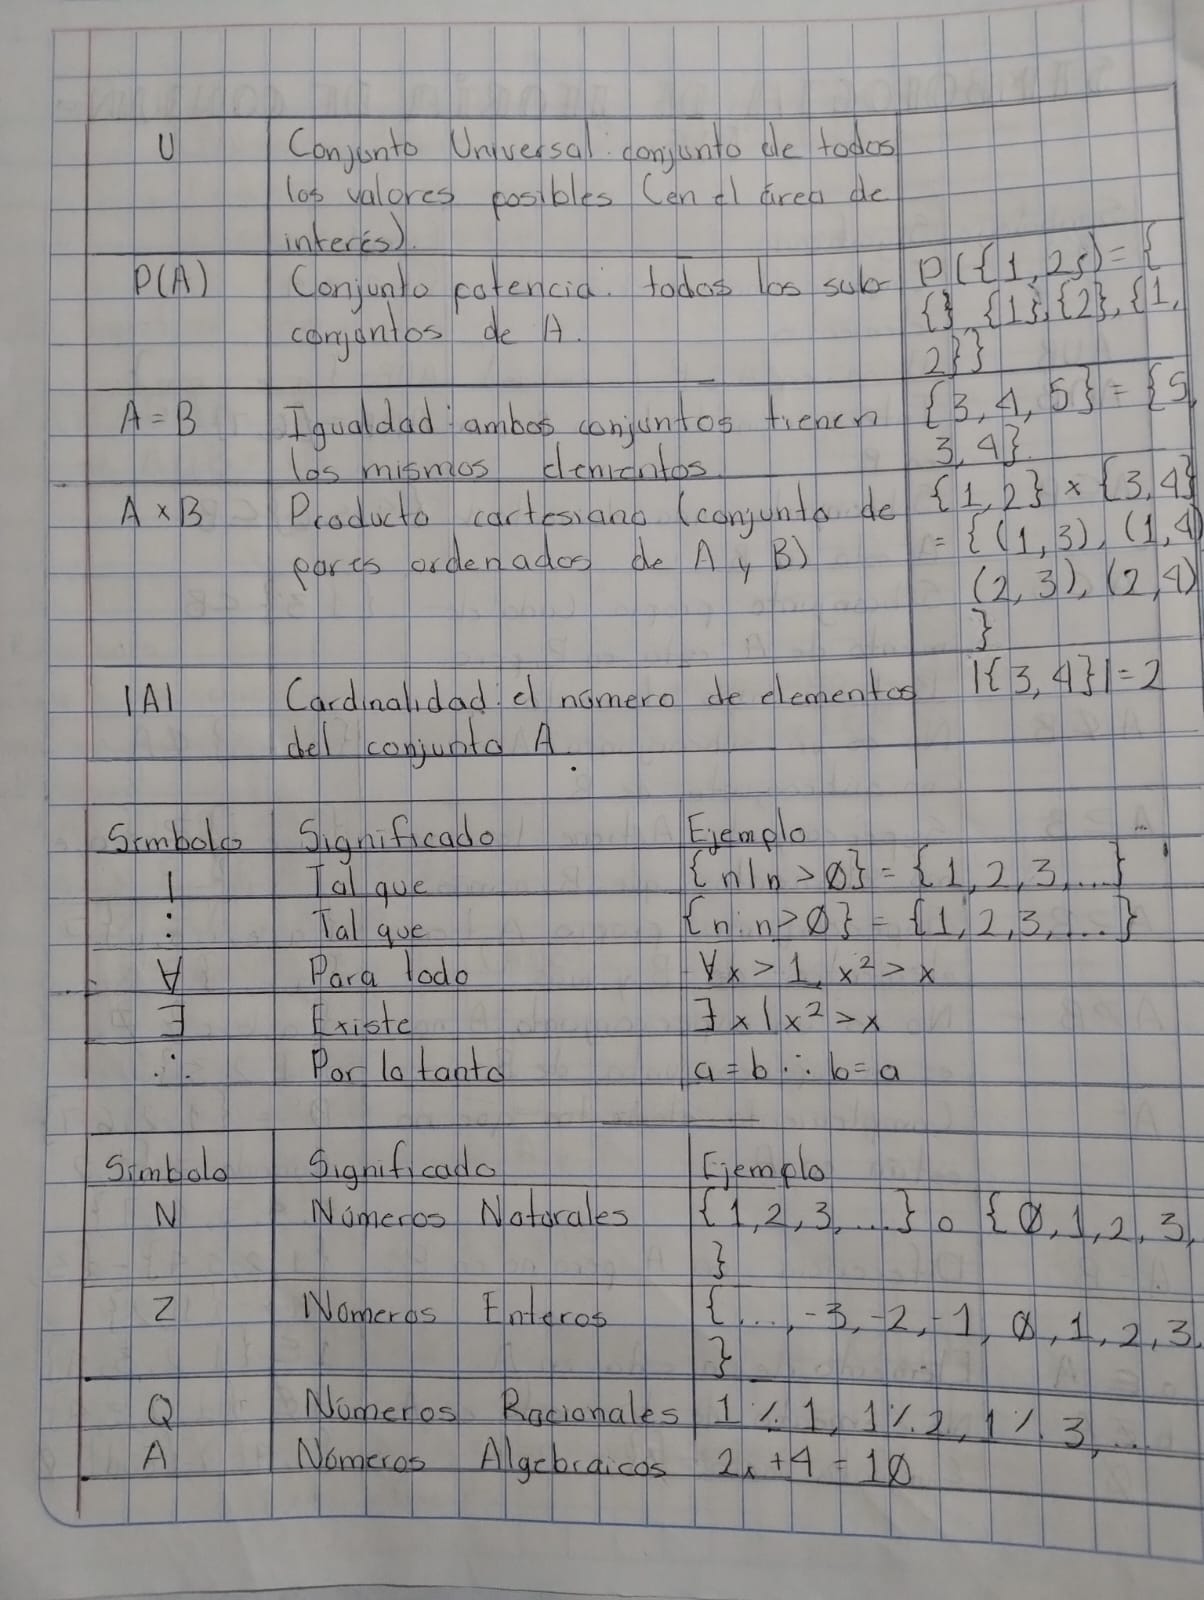 U Conjunto Universal: conjunto de todos
los valores posibles (en el área de
interés).
P(A) Conjunto potencia: todos los sub- P({1,2}) = {
conjuntos de A. {}, {1}, {2}, {1,
2}}
A = B Igualdad: ambos conjuntos tienen {3, 4, 5} = {5,
los mismos elementos 3, 4}.
A x B Producto cartesiano (conjunto de {1, 2} x {3, 4}
pares ordenados de A y B) = {(1, 3), (1, 4)
(2, 3), (2, 4)
}
|A| Cardinalidad: el número de elementos |{3, 4}| = 2
del conjunto A.
Símbolo Significado Ejemplo
| Tal que {n | n > Ø} = {1, 2, 3, ...}
: Tal que {n : n > Ø} = {1, 2, 3, ...}
∀ Para todo ∀x > 1, x² > x
∃ Existe ∃ x | x² > x
∴ Por lo tanto a = b ∴ b = a
Símbolo Significado Ejemplo
N Números Naturales {1, 2, 3, ...} o {Ø, 1, 2, 3,
}
Z Números Enteros {..., -3, -2, -1, Ø, 1, 2, 3,
}
Q Números Racionales 1 ⁒ 1, 1 ⁒ 2, 1 ⁒ 3, ...
A Números Algebraicos 2x + 4 = 1Ø